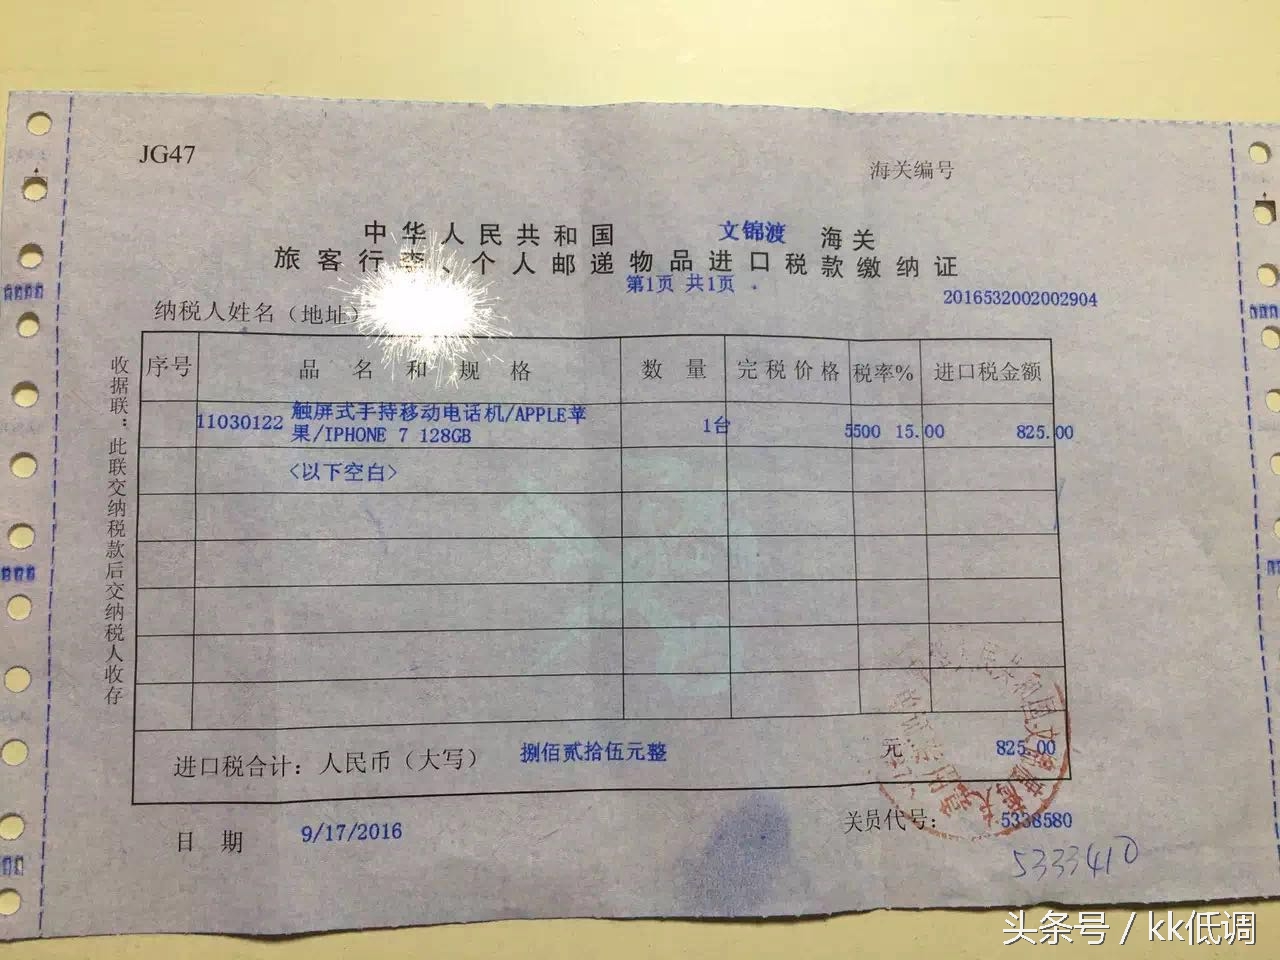 JG47
海关编号
中华人民共和国 文锦渡 海关
旅客行李、个人邮递物品进口税款缴纳证
第1页 共1页
2016532002002904
纳税人姓名（地址）
序号 品名和规格 数量 完税价格 税率% 进口税金额
11030122 触屏式手持移动电话机/APPLE苹
果/IPHONE 7 128GB 1台 5500 15.00 825.00
<以下空白>
收据联：此联交纳税款后交纳税人收存
进口税合计：人民币（大写） 捌佰贰拾伍元整 元 825.00
日期 9/17/2016 关员代号： 5338580
5333410
头条号 / kk低调